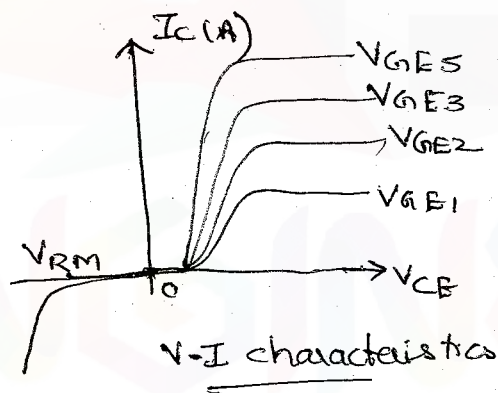 Ic (A)
VGE5
VGE3
VGE2
VGE1
VRM
0
VCE
V-I characteristics